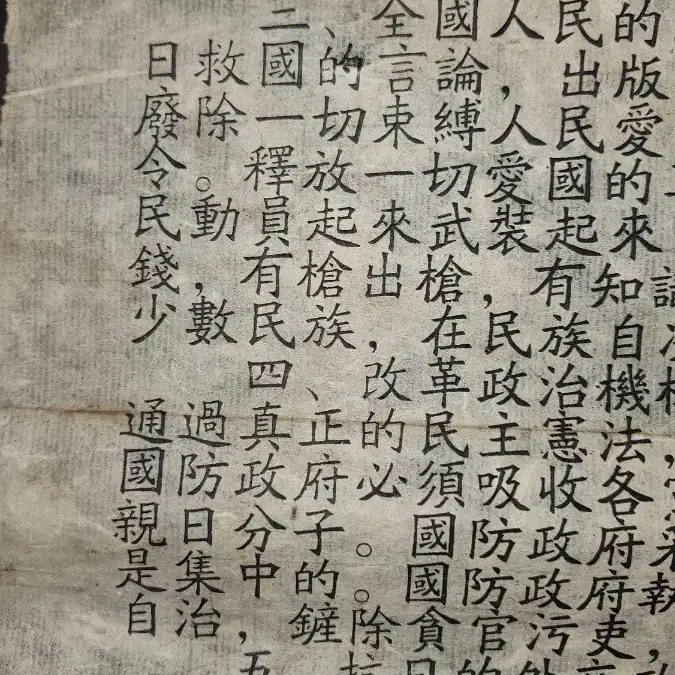 三、全國人民的
日救國的言論，出版
廢除一切束縛人民愛
令。釋放一切愛國的
民動員起來武裝起來
錢，有槍出槍，有知
少數民族，在民族自
四、改革政治機
通過真正的民主憲法
國防政府必須吸收各
親日分子。國防政府
是集中的。國防政府執
自治，鏟除貪官污吏，
五、抗日的外交